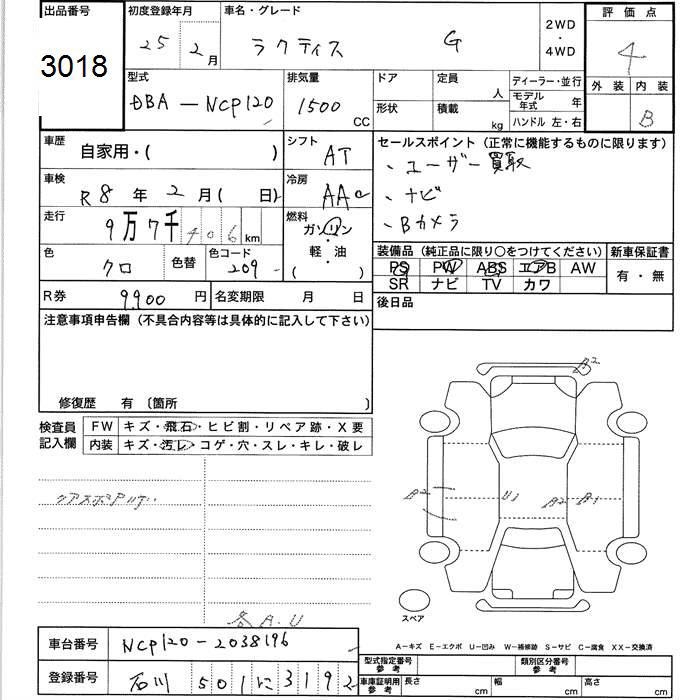 出品番号 初度登録年月 車名・グレード 2WD・4WD 評価点
3018 25 年 2月 ラクティス G 4
型式 排気量 ドア 定員 人 ディーラー・並行 外装 内装
DBA-NCP120 1500 CC 形状 積載 kg モデル年式 年 ハンドル 左・右 B
車歴 自家用・( ) シフト AT セールスポイント(正常に機能するものに限ります)
車検 R8年2月( 日) 冷房 AAC 、ユーザー買取
走行 9万7千406km 燃料 ガソリン・軽・油( ) 、ナビ
、Bカメラ
色 クロ 色替 色コード 209 装備品(純正品に限り○をつけてください) 新車保証書
PS PW ABS エアB AW 有・無
SR ナビ TV カワ
R券 9900円 名変期限 月 日 後日品
注意事項申告欄(不具合内容等は具体的に記入して下さい)
修復歴 有 〔箇所 〕
検査員記入欄 FW キズ・飛石・ヒビ割・リペア跡・X要
内装 キズ・汚レ・コゲ・穴・スレ・キレ・破レ
A2
A2 U1 A2 A1
各A.U
スペア
A-キズ E-エクボ U-凹み W-補修跡 S-サビ C-腐食 XX-交換済
車台番号 NCP120-2038196
型式指定番号 参考 類別区分番号 参考
登録番号 石川 501 に 3192
車庫証明用 参考 長さ cm 幅 cm 高さ cm